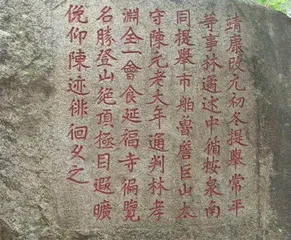 靖康改元初冬提舉常平
等事林遹述中循按泉南
同提舉市舶魯詹巨山太
守陳元老大年通判林孝
淵全一會食延福寺徧覽
名勝登山絕頂極目遐曠
俛仰陳迹徘徊久之